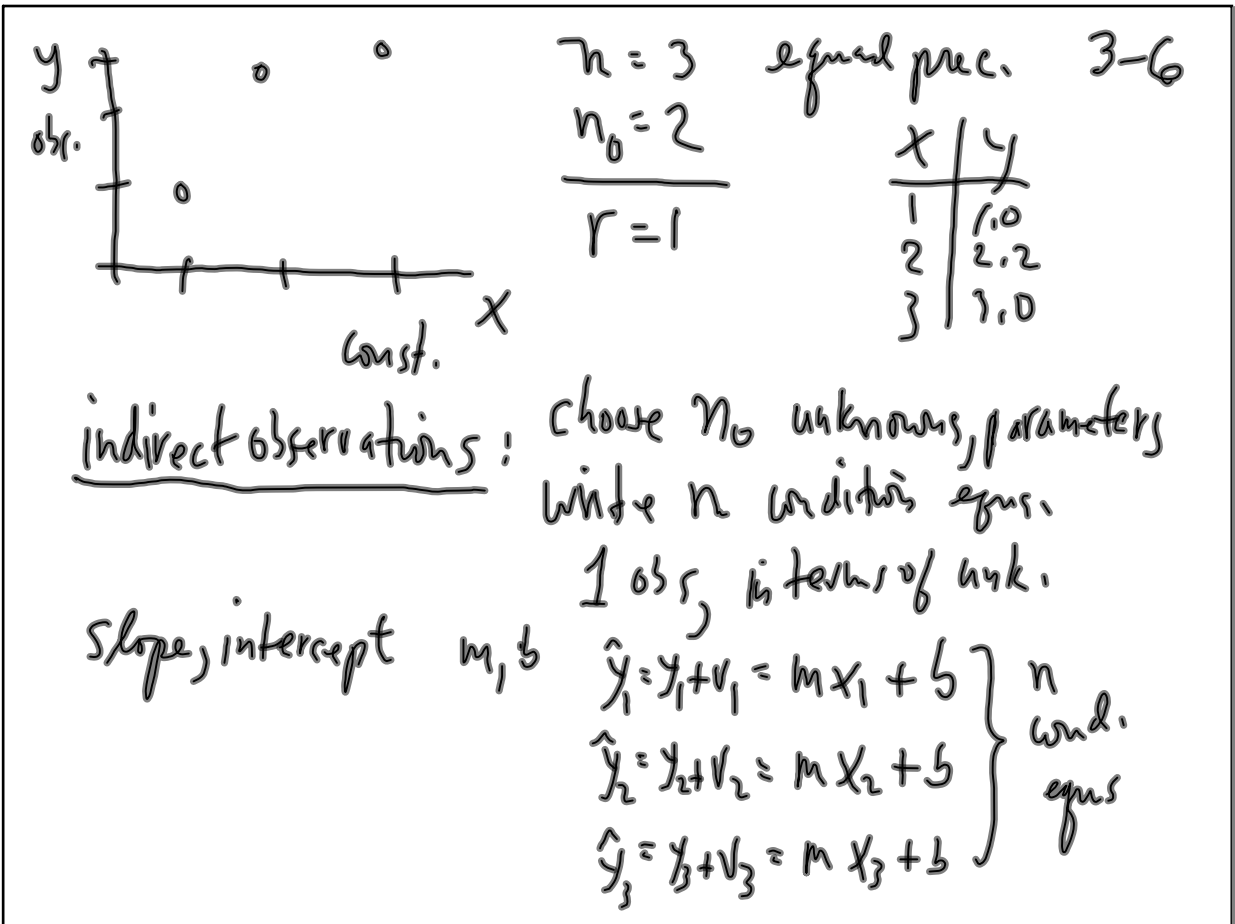 y
obs.
x
const.
n = 3 equal prec. 3-6
n₀ = 2
r = 1
x | y
1 | 1.0
2 | 2.2
3 | 3.0
indirect observations: choose n₀ unknowns, parameters
write n condition eqns.
1 obs, in terms of unk.
slope, intercept m, b
ŷ₁ = y₁ + v₁ = mx₁ + b
ŷ₂ = y₂ + v₂ = mx₂ + b
ŷ₃ = y₃ + v₃ = mx₃ + b
n
cond.
eqns